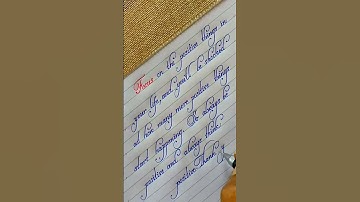 Focus on the positive things in
your life, and you'll be shocked
at how many more positive things
start happening. So always be
positive and always think
positive. Thank y